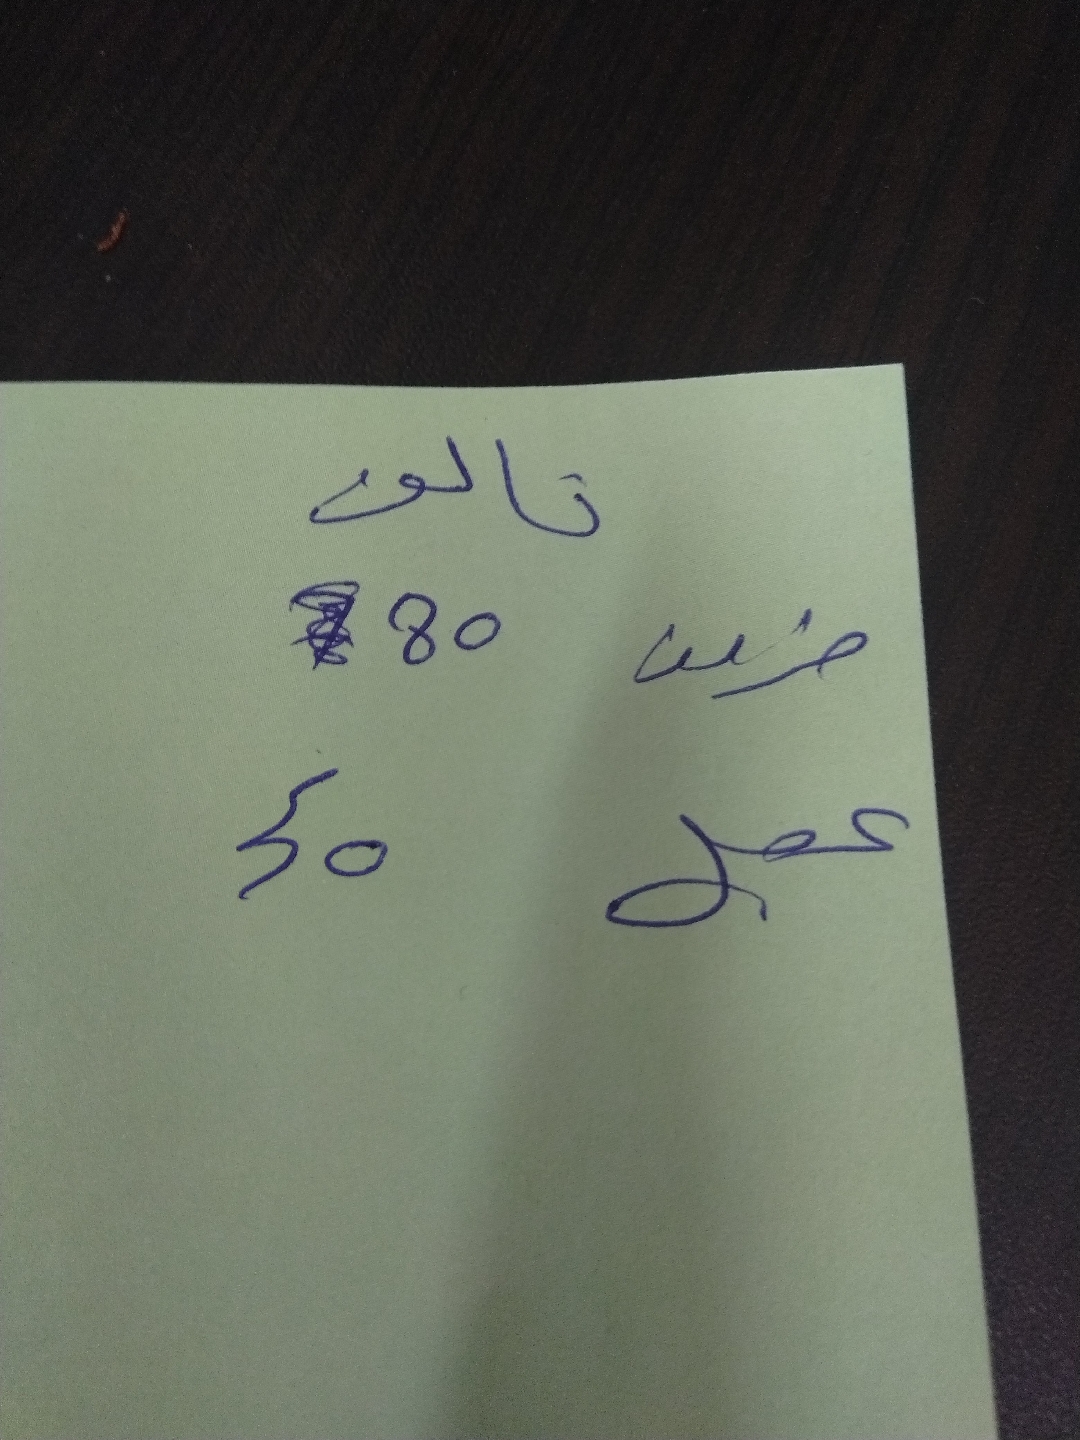 تالون
خزين 80
عمل 50